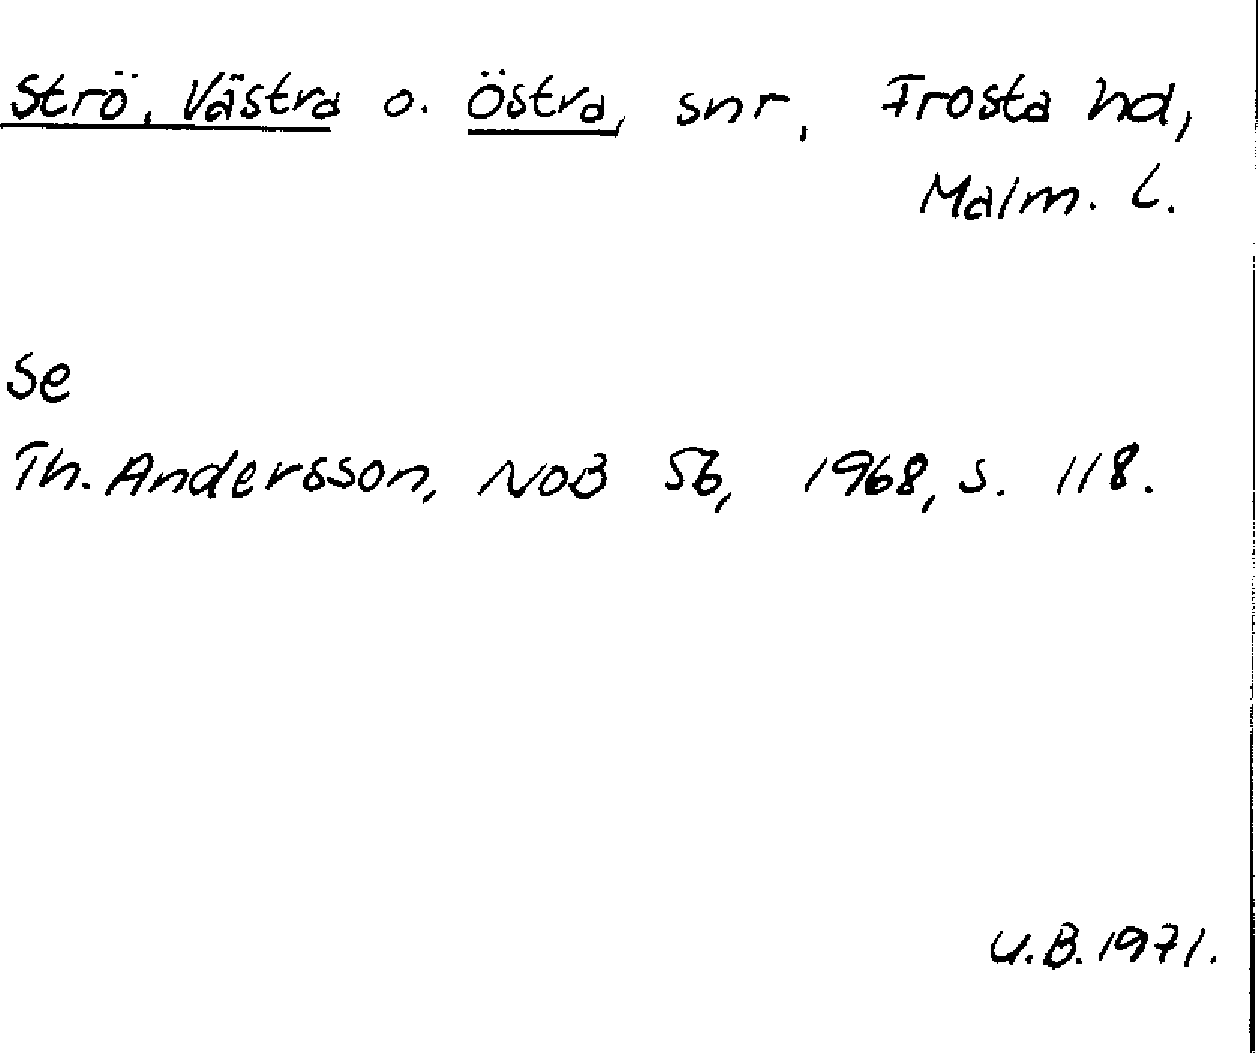 Strö, Västra o. Östra, snr, Frosta hd,
Malm. L.
Se
Th. Andersson, NoB 56, 1968, s. 118.
U.B. 1971.